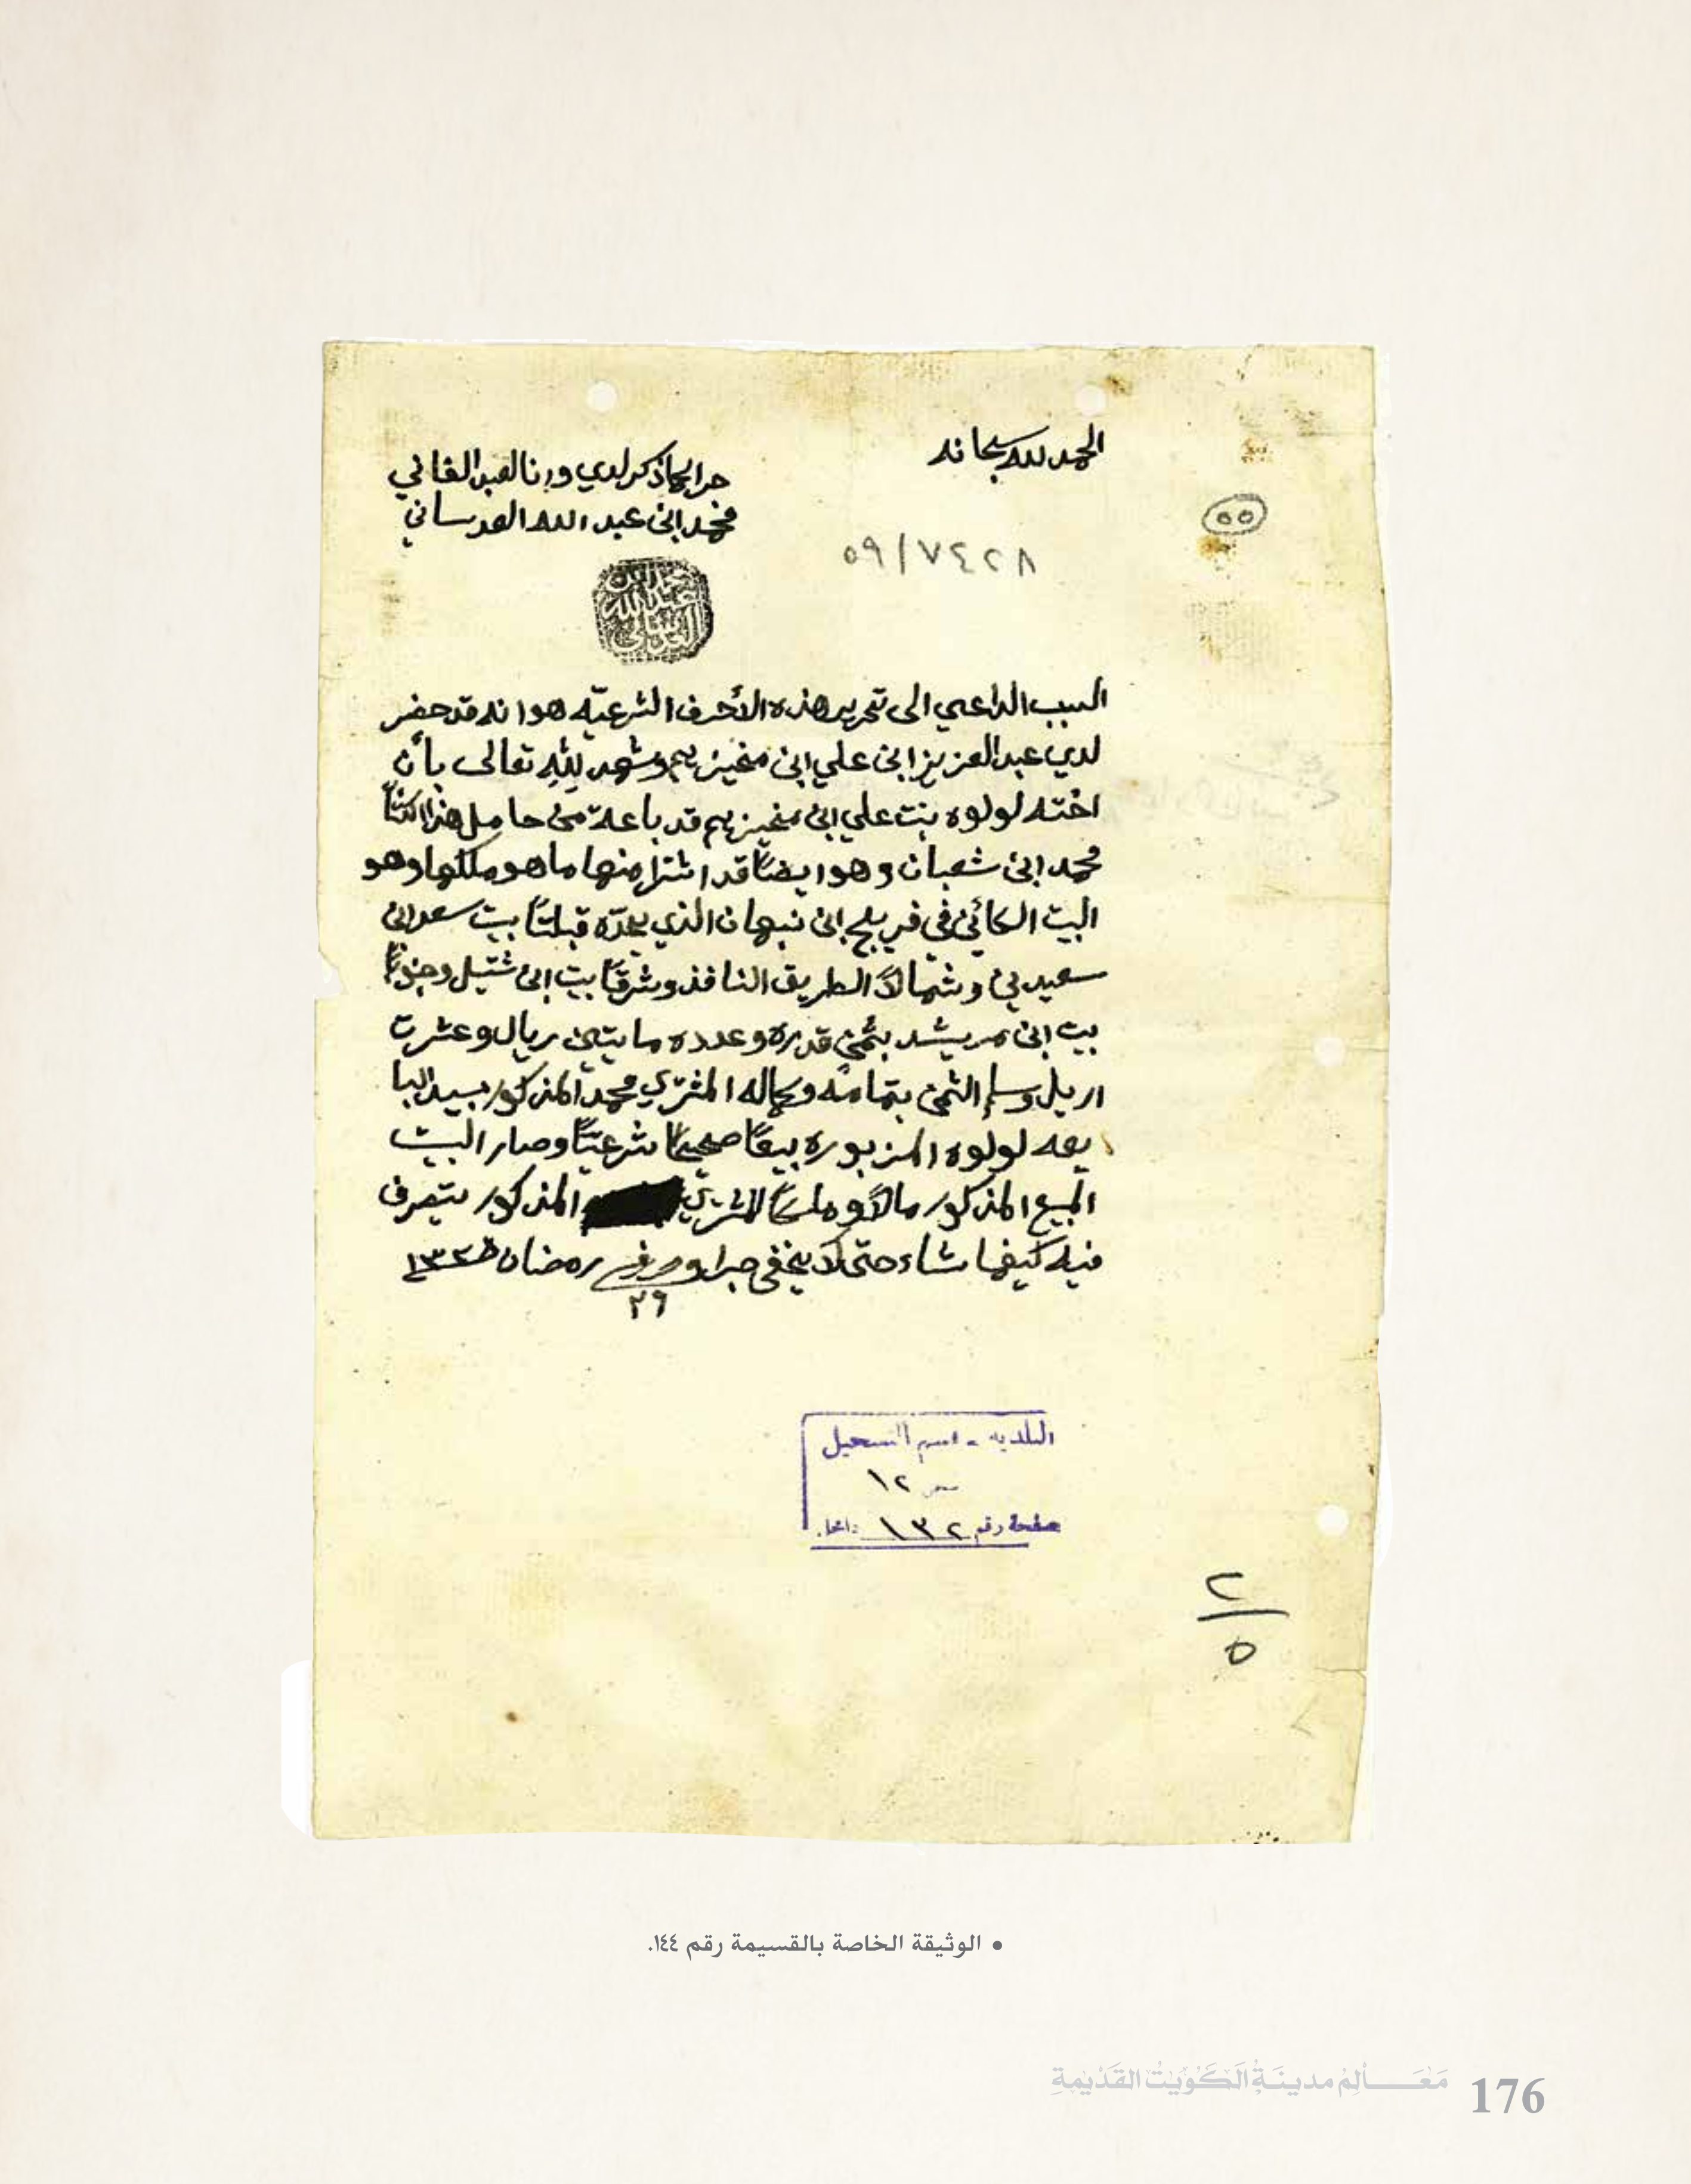 الحمد لله سبحانه
جرا لما ذكر لدي وانا العبد الفاني
محمد ابن عبد الله العدساني
٥٥
٥٩/٧٤٢٨
محمد ابن
عبد الله
العدساني
السبب الداعي الى تحرير هذه الأحرف الشرعيّه هو انه قد حضر
لدي عبد العزيز ابن علي ابن منيخر وشهد لله تعالى بأن
اخته لولوه بنت علي ابن قد باعة من حامل هذا الكتاب
محمد ابن شعبان وهو ايضًا قد اشترا منها ما هو ملكها وهو
البيت الكائن في فريج ابن نبهان الذي يحدّه قبلتًا بيت سعد ابن
سعيد وشمالًا الطريق النافذ وشرقًا بيت ابن شتيل وجنوبًا
بيت ابن مريشد بثمن قدره وعدده مايتين ريال وعشرت
اريل وسلم الثمن بتمامه وكماله المشتري محمد المذكور بيد البا
يعه لولوه المزبوره بيعًا صحيحًا شرعيًّا وصار البيت
المبيع المذكور مالًا وملكًا للمشتري المذكور يتصرف
فيه كيفما شاء حتى لا يخفى جرا وحرر في رمضان ١٣٢٦
٢٩
البلديه - قسم التسجيل
١٢
صفحة رقم ١٣٢
٢
٥
• الوثيقة الخاصة بالقسيمة رقم ١٤٤.
مَعَالِمُ مدينَةِ الكُوَيْتْ القَدْيمَةِ
176